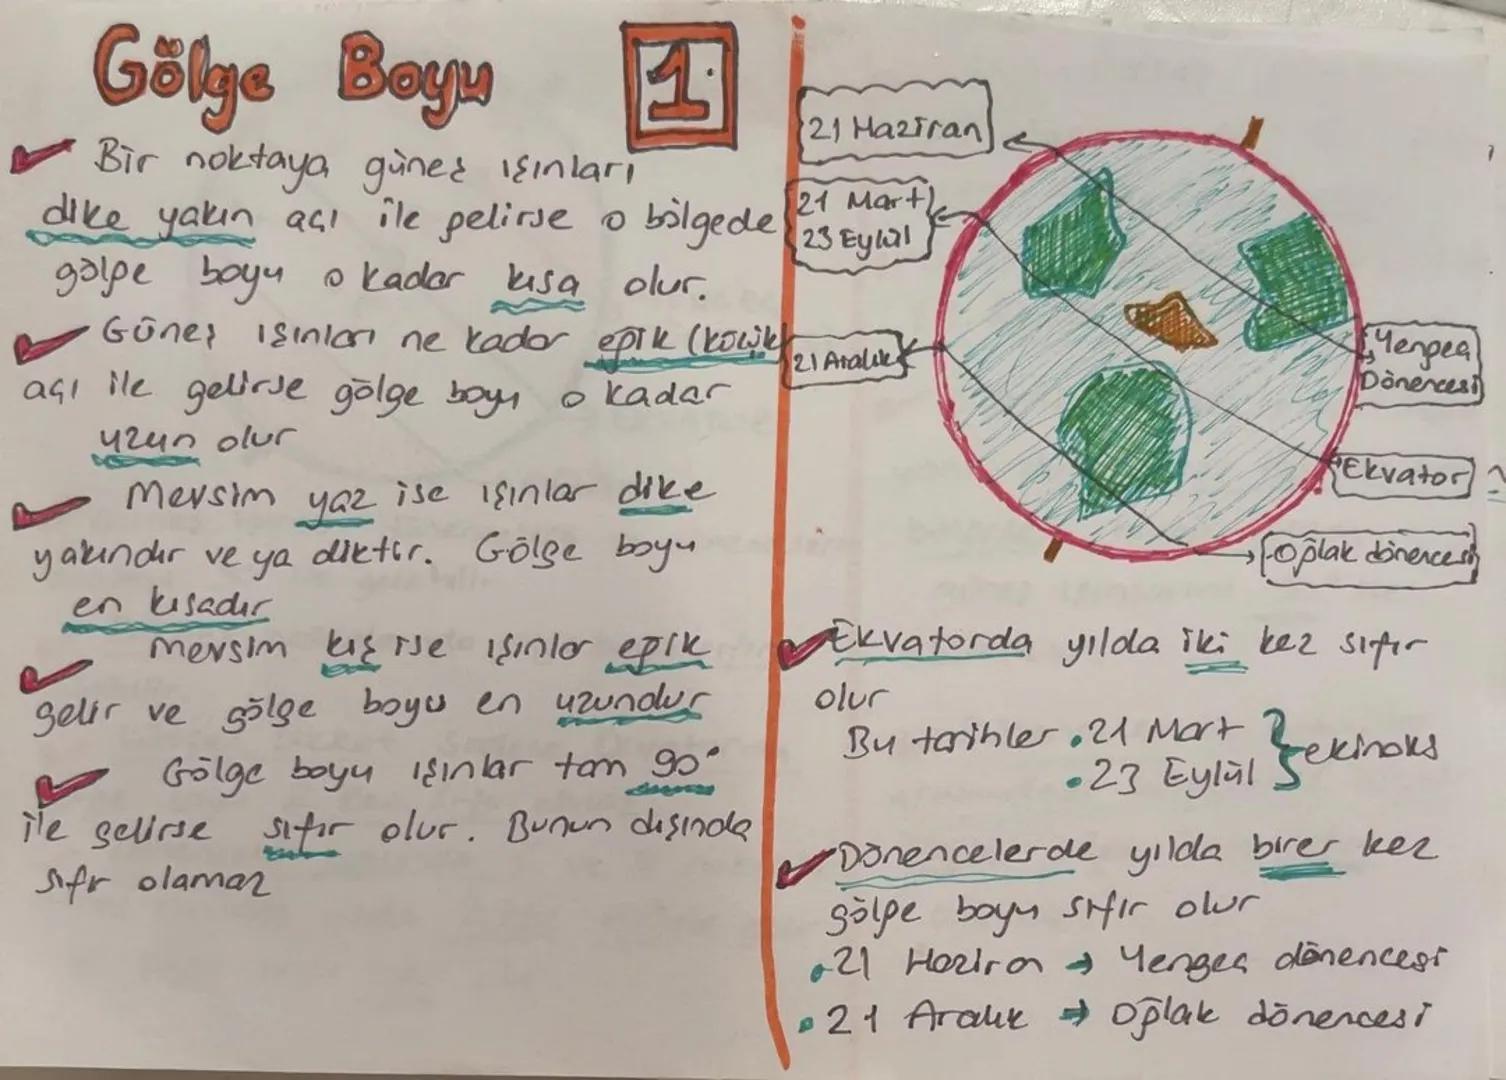 Gölge Boyu
1
Bir noktaya güneş ışınları
dike yakın açı ile gelirse o bölgede
gölge boyu o kadar kısa olur.
Güneş ışınları ne kadar eğik (küçük
açı ile gelirse gölge boyu o kadar
uzun olur
Mevsim yaz ise ışınlar dike
yakındır ve ya diktir. Gölge boyu
en kısadır
Mevsim kış ise ışınlar eğik
gelir ve gölge boyu en uzundur
Gölge boyu ışınlar tam 90°
ile gelirse sıfır olur. Bunun dışında
sıfır olamaz
21 Haziran
21 Mart
23 Eylül
21 Aralık
Yengeç
Dönencesi
Ekvator
Oğlak dönencesi
Ekvatorda yılda iki kez sıfır
olur
Bu tarihler • 21 Mart
• 23 Eylül } ekinoks
Dönencelerde yılda birer kez
gölge boyu sıfır olur
• 21 Haziran → Yengeç dönencesi
• 21 Aralık → Oğlak dönencesi